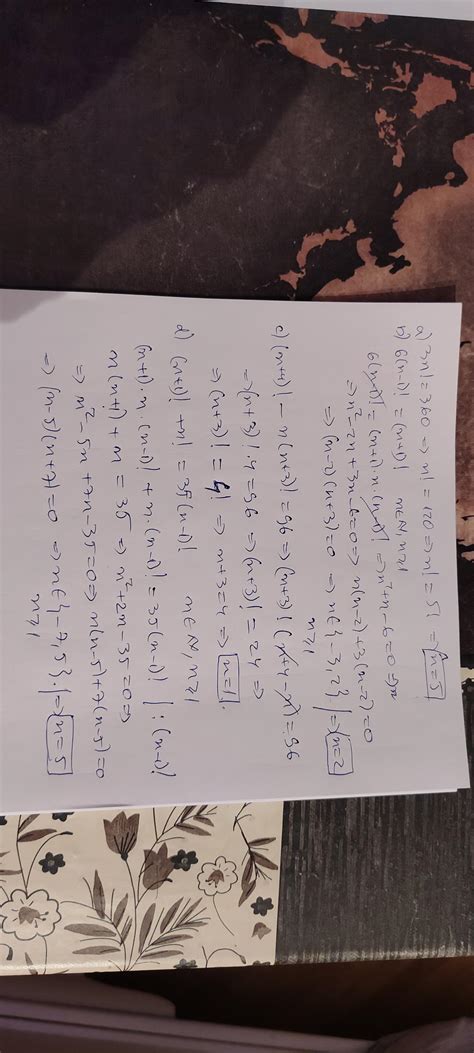 a) 3n! = 360 => n! = 120 => n! = 5! => n = 5
b) 6(n-1)! = (n+1)! n∈N, n≥1
6(n-1)! = (n+1)·n·(n-1)! => n²+n-6=0 =>
=> n²-2n+3n-6=0 => n(n-2)+3(n-2)=0
=> (n-2)(n+3)=0 => n∈{-3,2} | => n=2
n≥1
c) (n+4)! - n(n+3)! = 96 => (n+3)! (n+4-n) = 96
=> (n+3)!·4=96 => (n+3)! = 24 =>
=> (n+3)! = 4! => n+3=4 => n=1.
d) (n+1)! + n! = 35(n-1)! n∈N, n≥1
(n+1)·n·(n-1)! + n·(n-1)! = 35(n-1)! | :(n-1)!
n(n+1)+n = 35 => n²+2n-35=0 =>
=> n²-5n+7n-35=0 => n(n-5)+7(n-5)=0
=> (n-5)(n+7)=0 => n∈{-7,5} | => n=5
n≥1